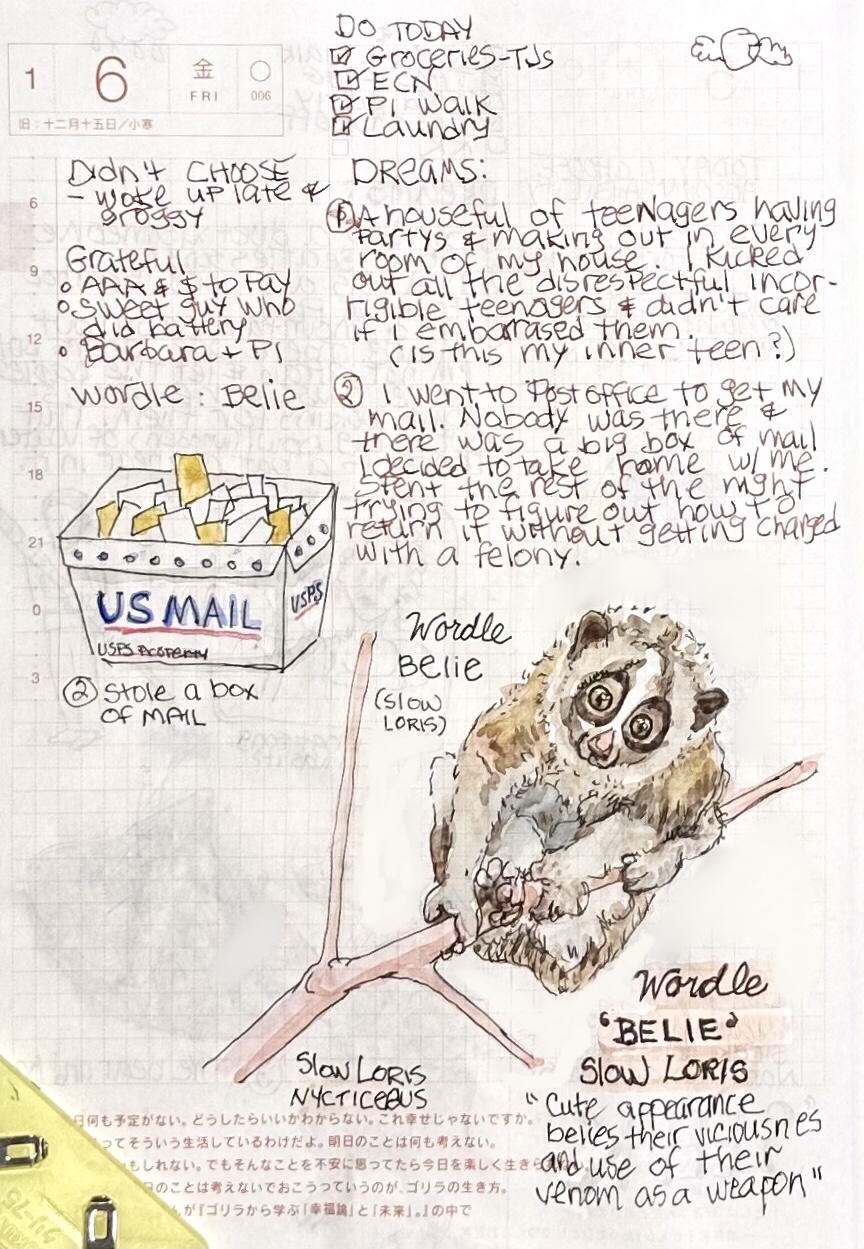 DO TODAY
☑ Groceries-TJs
☑ ECN
☑ PI WALK
☑ Laundry
1 6 金 FRI 006
旧：十二月十五日／小寒
Didn't CHOOSE
- woke up late &
groggy
Grateful
o AAA & $ to Pay
o Sweet guy who
did battery
o Barbara + PI
Wordle : Belie
DREAMS:
① A houseful of teenagers having
Partys & making out in every
room of my house. I kicked
out all the disrespectful incor-
rigible teenagers & didn't care
if I embarrased them.
(is this my inner teen?)
② I went to Post office to get my
mail. Nobody was there &
there was a big box of mail
I decided to take home w/ me.
Spent the rest of the night
trying to figure out how to
return it without getting charged
with a felony.
6
9
12
15
18
21
0
3
US MAIL
USPS
USPS PROPERTY
② Stole a box
OF MAIL
Wordle
Belie
(SLOW
LORIS)
Wordle
"BELIE"
SLOW LORIS
"Cute appearance
belies their viciousnes
and use of their
venom as a weapon"
SLOW LORIS
NYCTICEBUS
日何も予定がない。どうしたらいいかわからない。これ幸せじゃないですか。
ってそういう生活しているわけだよ。明日のことは何も考えない。
もしれない。でもそんなことを不安に思ってたら今日を楽しく生き
のことは考えないでおこうっていうのが、ゴリラの生き方。
が『ゴリラから学ぶ「幸福論」と「未来」。』の中で